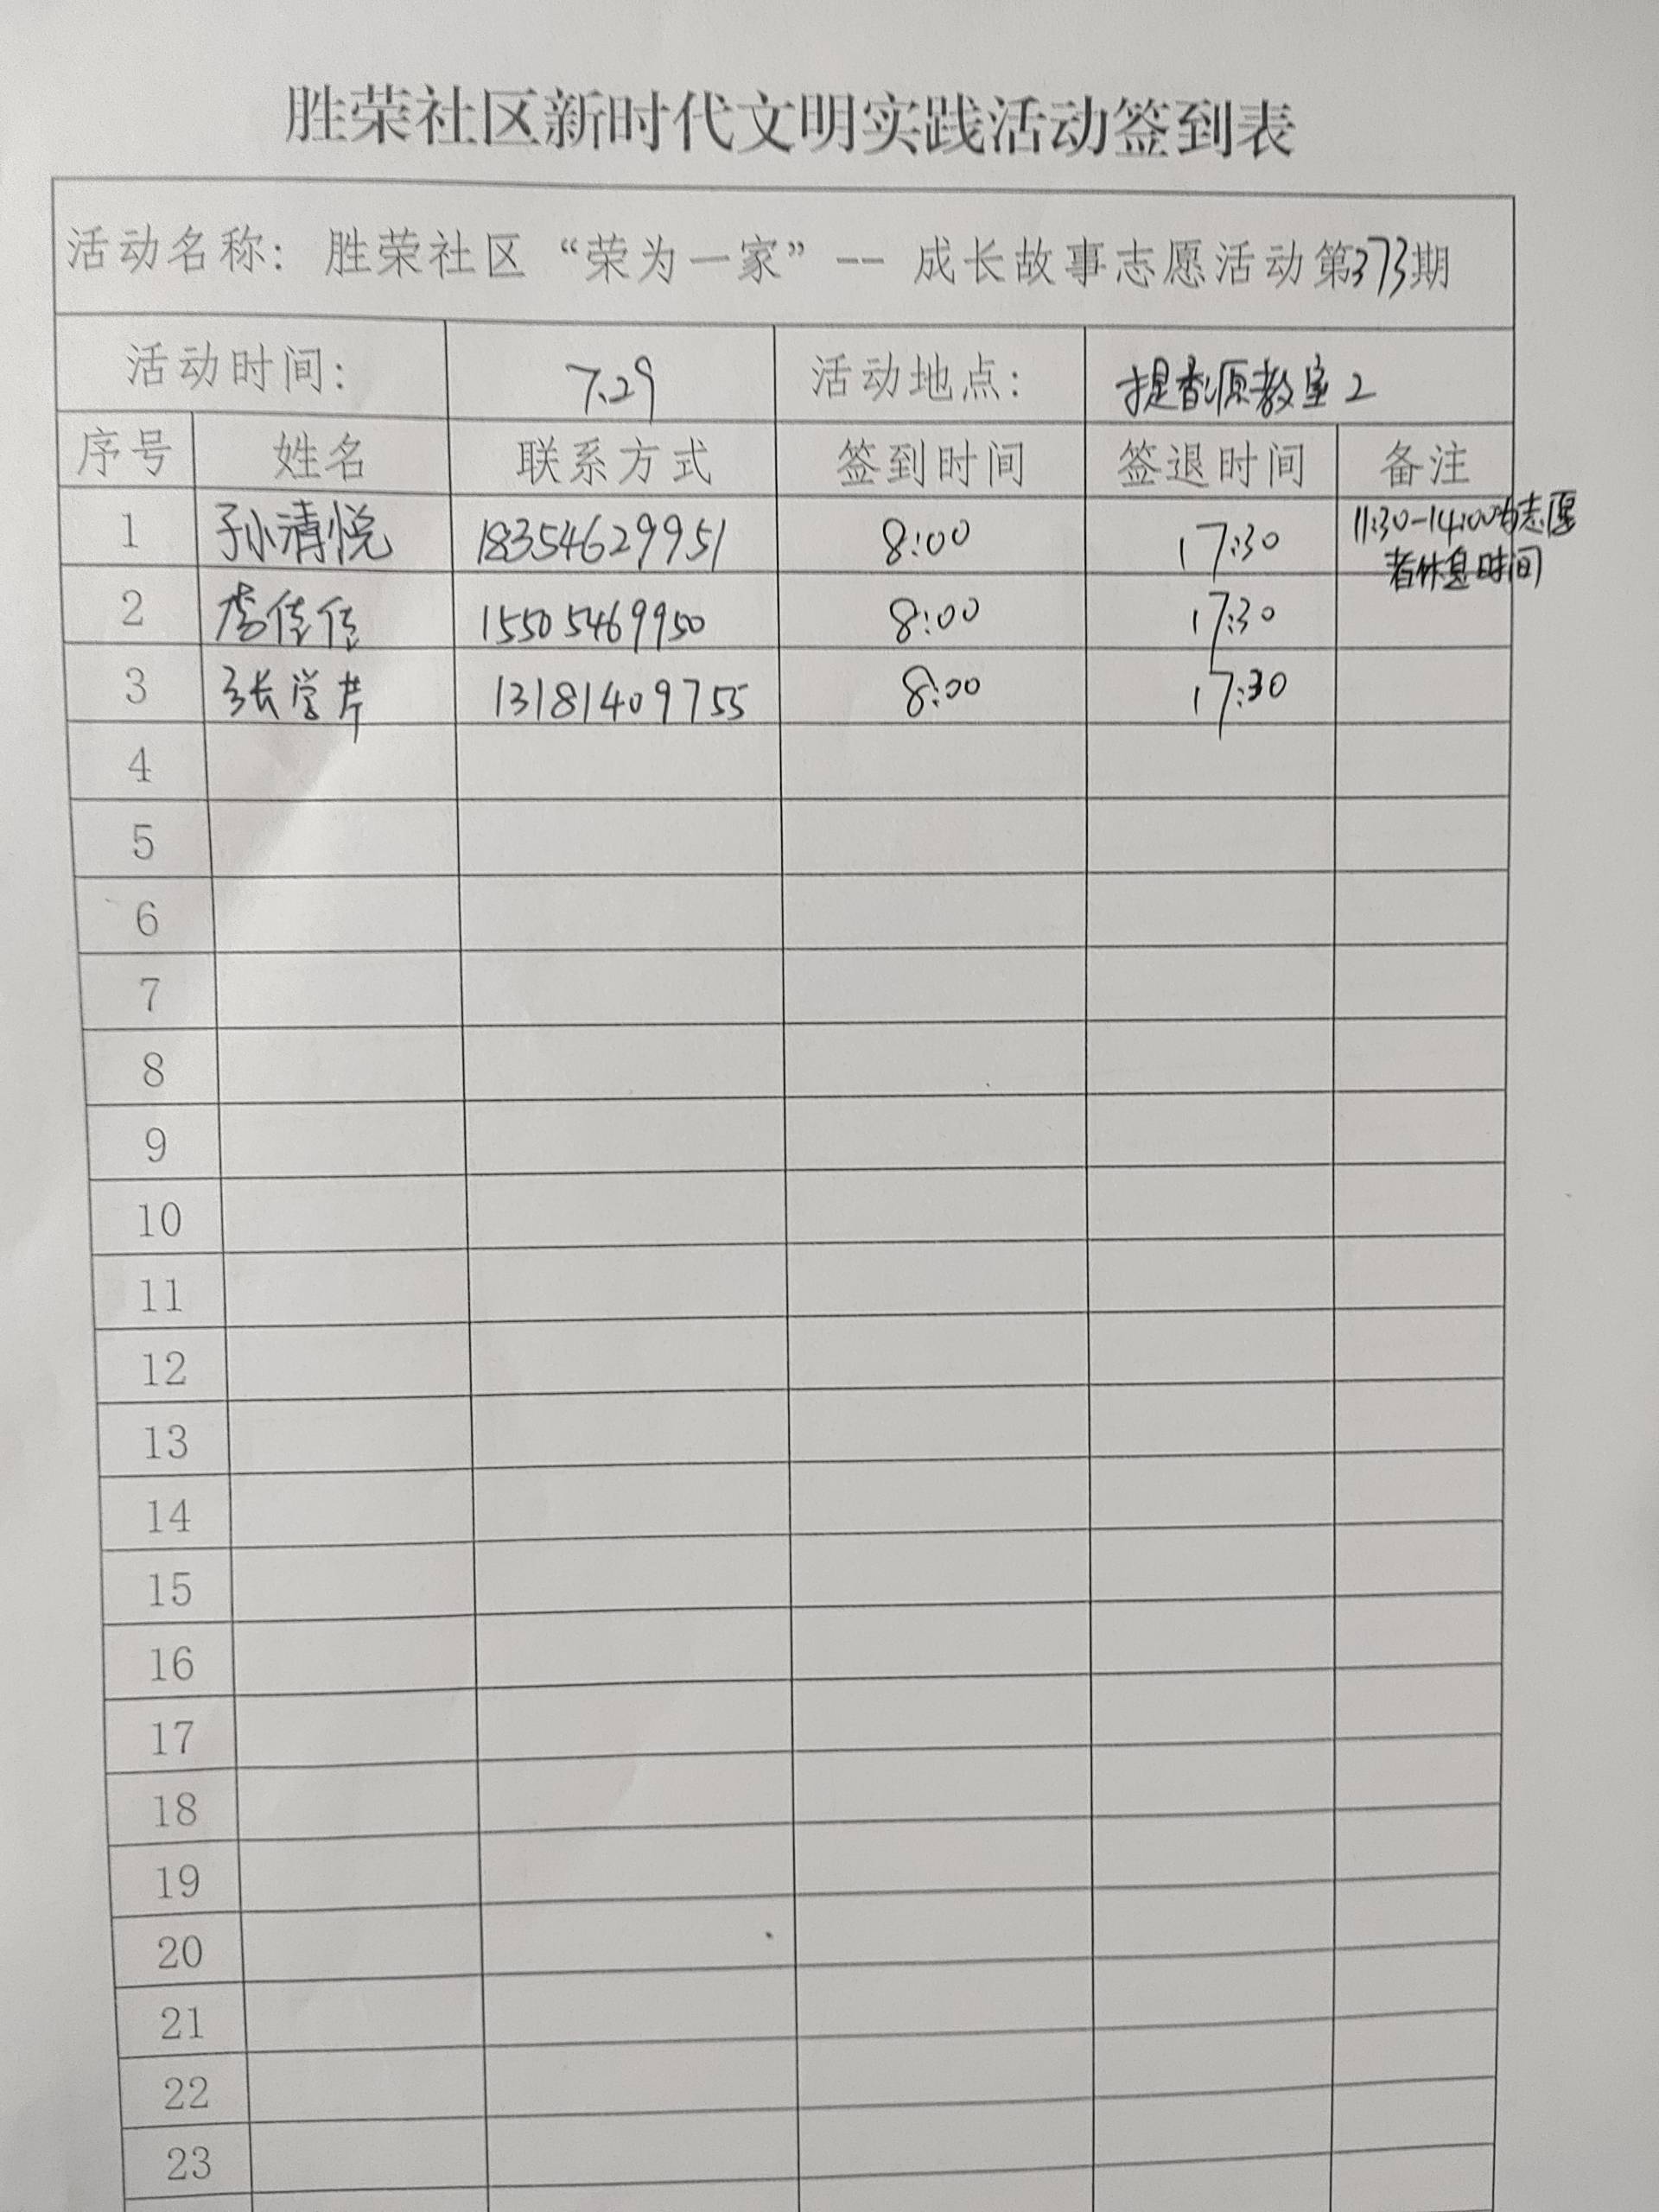 胜荣社区新时代文明实践活动签到表
活动名称：胜荣社区“荣为一家”--成长故事志愿活动第373期
活动时间： 7.29 活动地点： 提香源教室2
序号 姓名 联系方式 签到时间 签退时间 备注
1 孙清悦 18354629951 8:00 17:30 11:30-14:00为志愿
者休息时间
2 李佳佳 15505469950 8:00 17:30
3 张学芹 13181409755 8:00 17:30
4
5
6
7
8
9
10
11
12
13
14
15
16
17
18
19
20
21
22
23